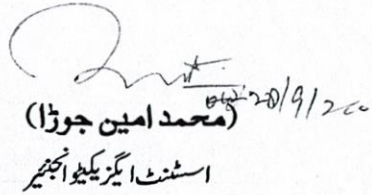 28/9/200
(محمد امین جوڑا)
اسسٹنٹ ایگزیکیٹو انجنیئر